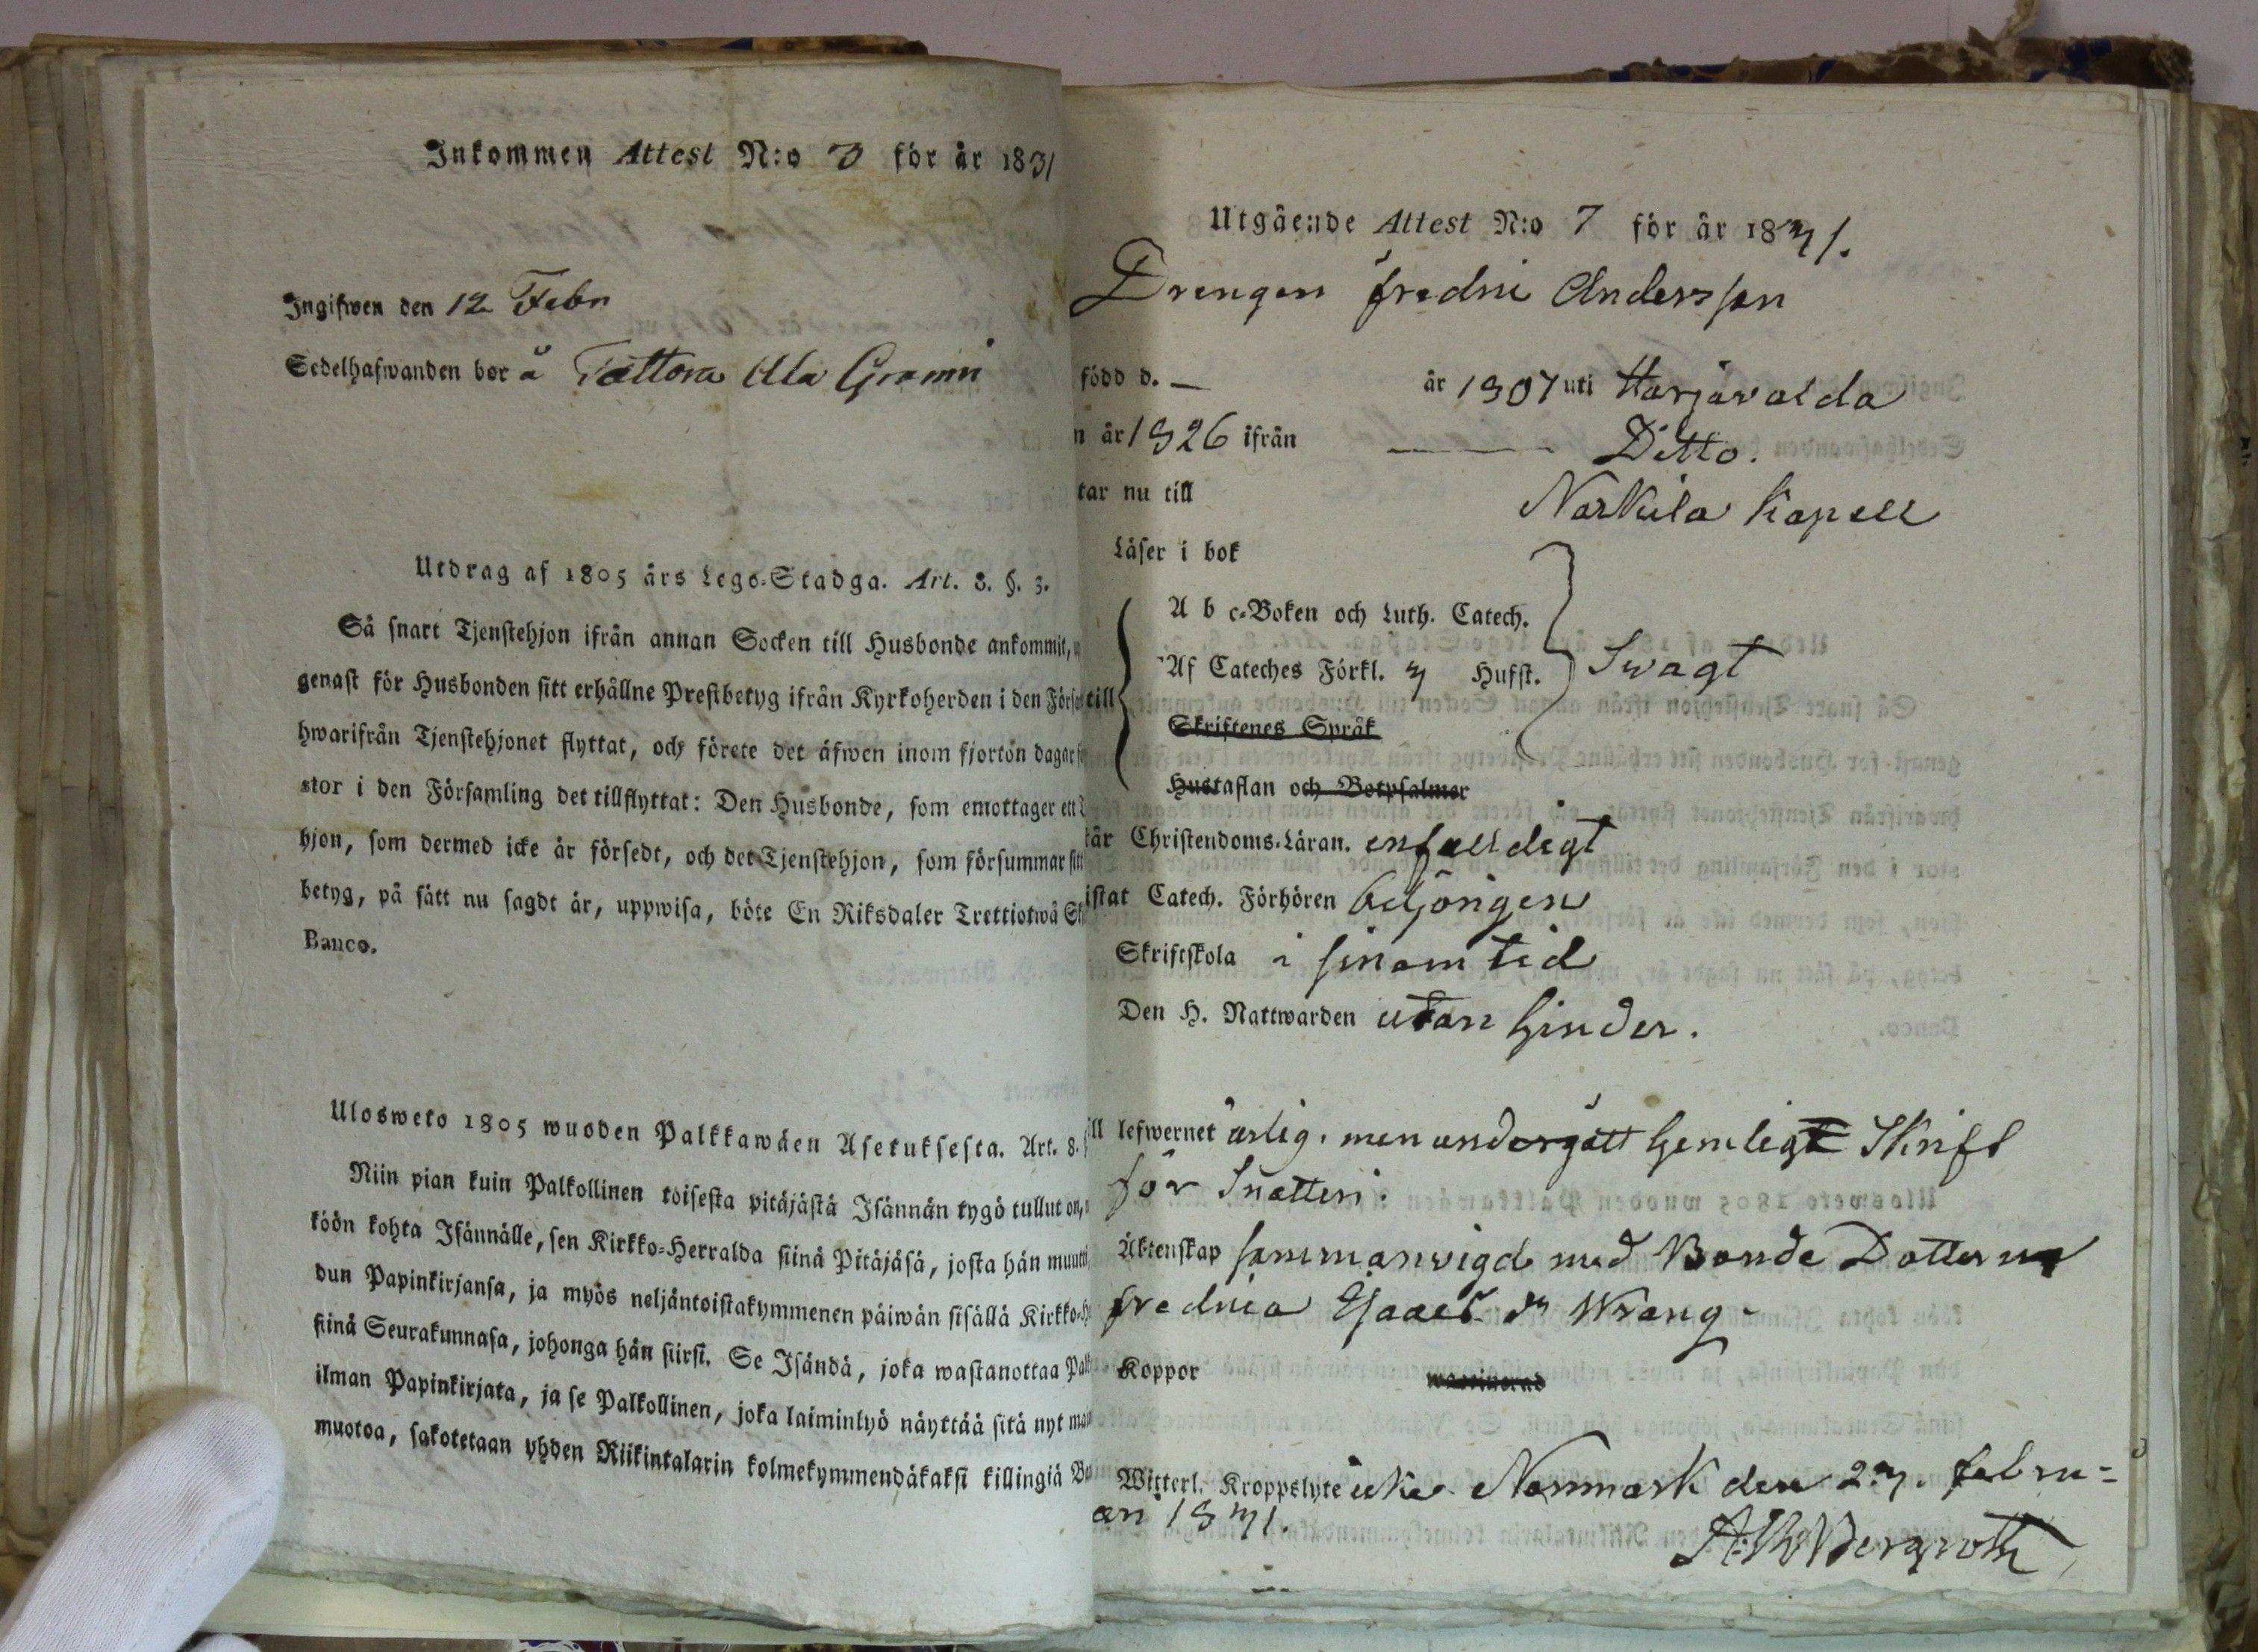 Inkommen Attest N:o 3 för år 1831
Ingifwen den 12 Febr
Sedelhafwanden bor å Tattora Ala Grami
Utdrag af 1805 års Lego-Stadga. Art. 8. §. 3.
Så snart Tjenstehjon ifrån annan Socken till Husbonde ankommit,
genast för Husbonden sitt erhållne Prestbetyg ifrån Kyrkoherden i den Förs
hwarifrån Tjenstehjonet flyttat, och förete det äfwen inom fjorton dagar
stor i den Församling det tillflyttat: Den Husbonde, som emottager ett
hjon, som dermed icke är försedt, och det Tjenstehjon, som försummar sitt
betyg, på sätt nu sagdt är, uppwisa, böte En Riksdaler Trettiotwå Sk
Banco.
Ulosweto 1805 wuoden Palkkawäen Asetuksesta. Art. 8.
Niin pian kuin Palkollinen toisesta pitäjästä Isännän tygö tullut on,
köön kohta Isännälle, sen Kirkko-Herralda siinä Pitäjäsä, josta hän muutti
dun Papinkirjansa, ja myös neljäntoistakymmenen päiwän sisällä Kirkko-H
siinä Seurakunnasa, johonga hän siirsi. Se Isändä, joka wastanottaa Palk
ilman Papinkirjata, ja se Palkollinen, joka laiminlyö näyttää sitä nyt ma
muotoa, sakotetaan yhden Riikintalarin kolmekymmendäkaksi killingiä B
Utgående Attest N:o 7 för år 1831.
Drengen Fredric Andersson
född d. — år 1807 uti Harjavalda
n år 1826 ifrån — Ditto.
tar nu till Närkila Kapell
Läser i bok
A b c-Boken och Luth. Catech.
till Af Cateches Förkl. 3 Hufst. Swagt
Skriftenes Språk
Hustaflan och Botpsalmer
tär Christendoms-Läran. enfalldigt
istat Catech. Förhören behörigen
Skriftskola i sinom tid
Den H. Nattwarden utan hinder.
ill lefwernet ärlig. men undergått hemligt Skrift
för Snatteri.
Äktenskap sammanvigd med Bonde Dottern
Fredrica Isaacs dr Wrang.
Koppor waccinerad
Witterl. Kroppslyte icke. Norrmark den 23. Febru=
ari 1831.